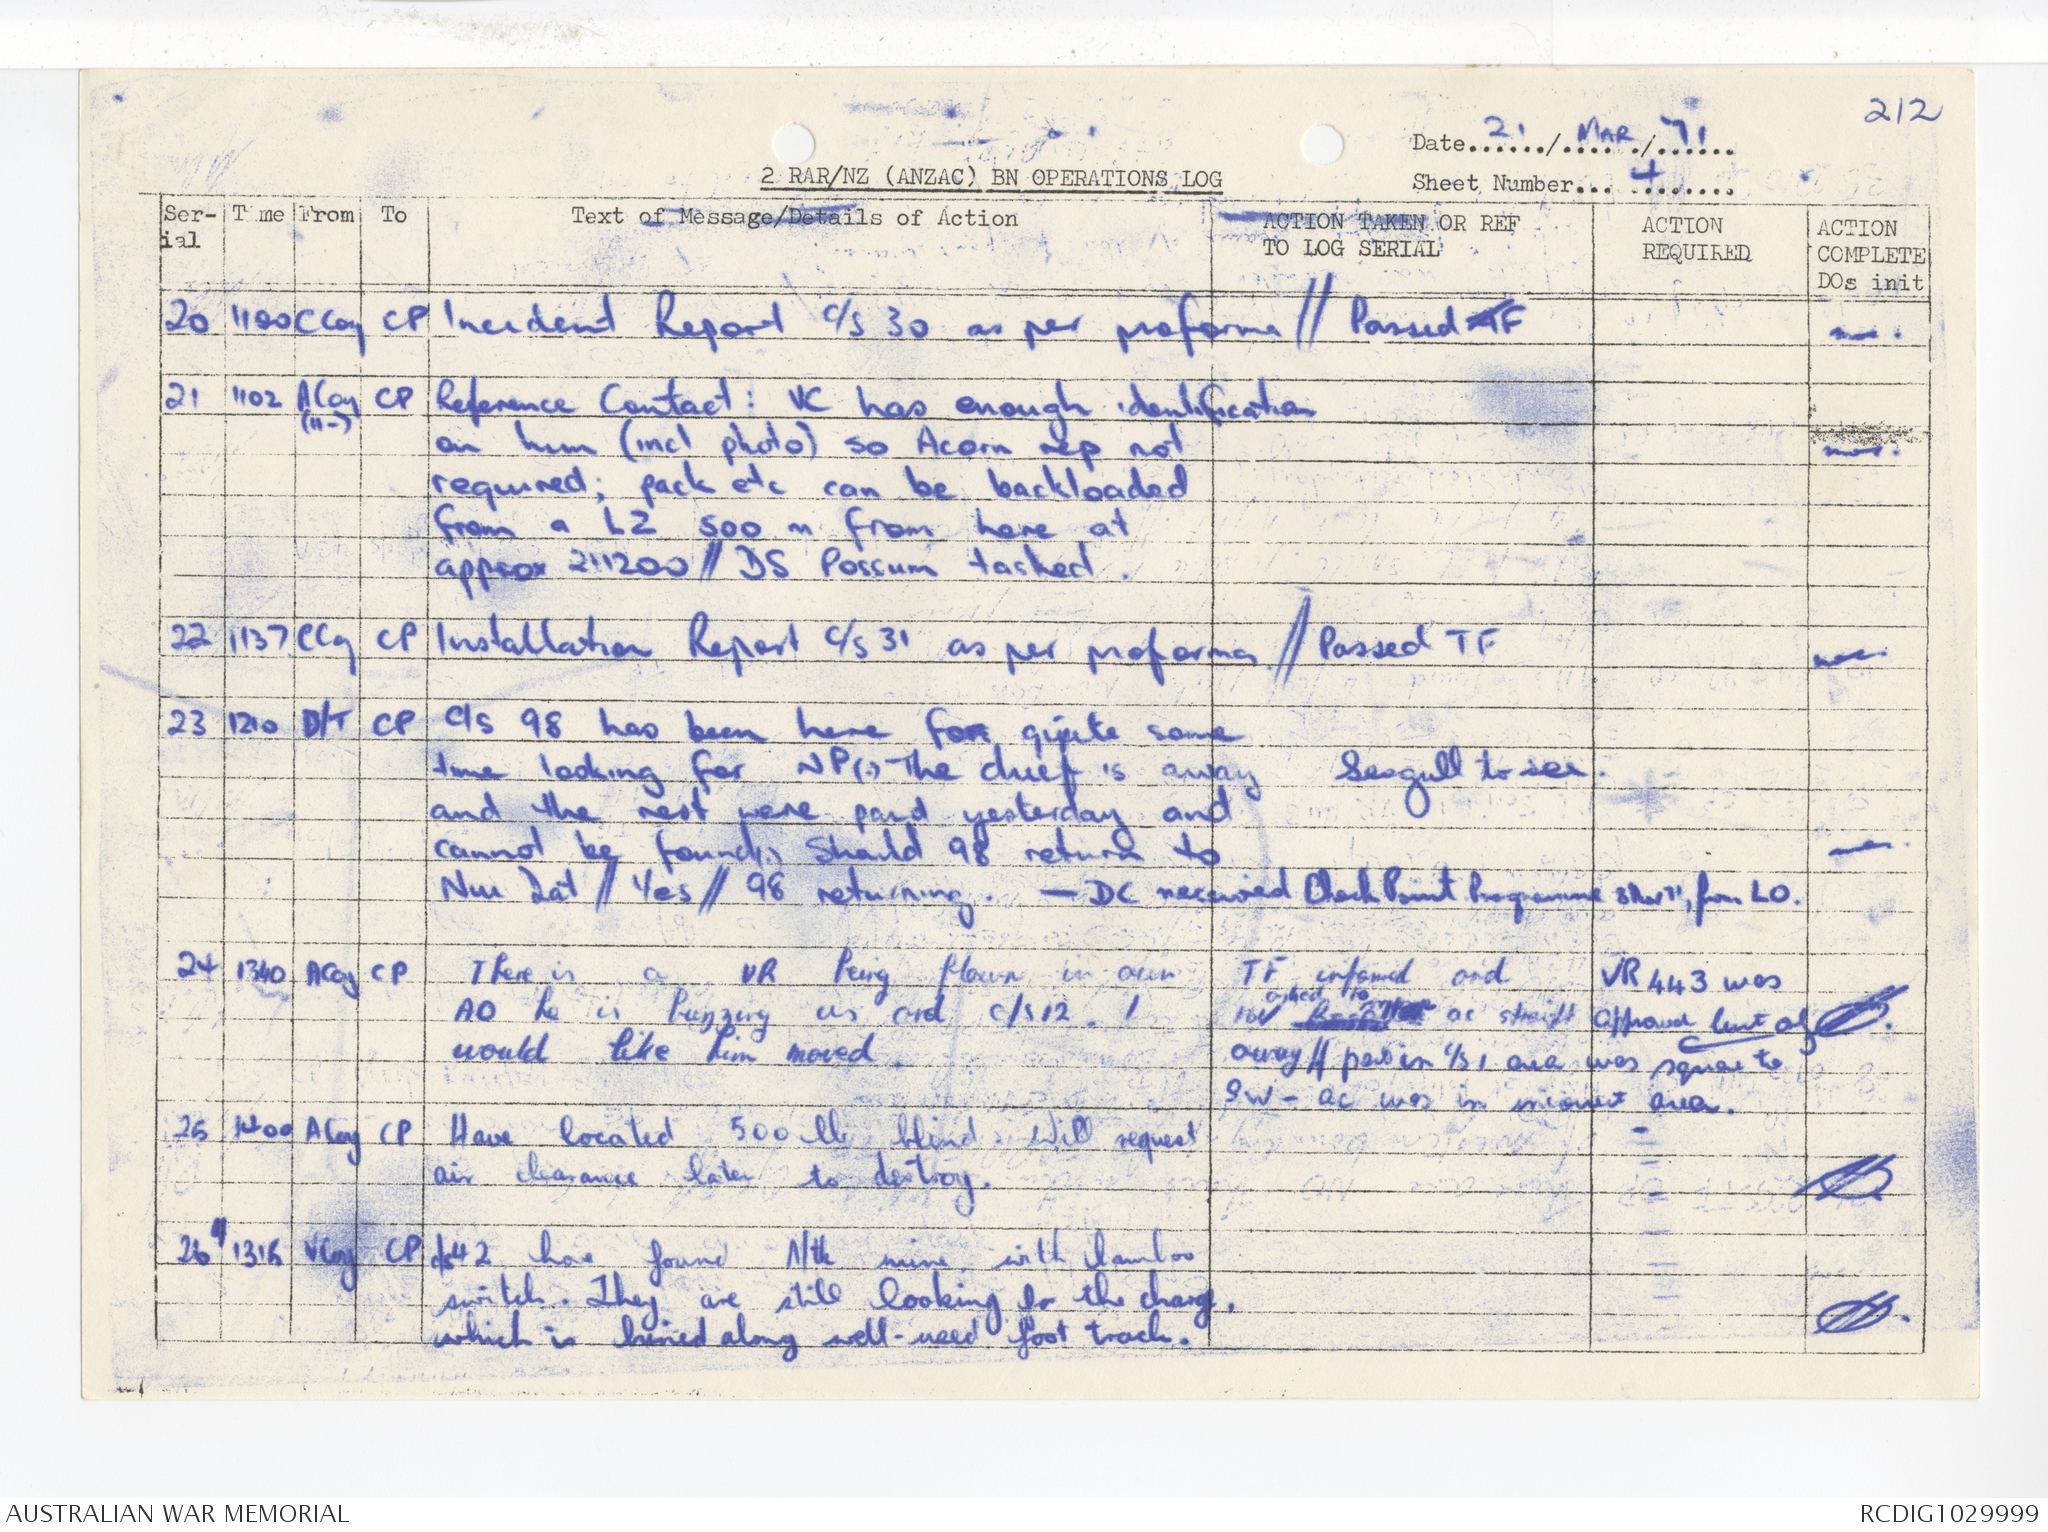 212
Date 21 / MAR / 71
Sheet Number 4
2 RAR/NZ (ANZAC) BN OPERATIONS LOG
Ser- Time From To Text of Message/Details of Action ACTION TAKEN OR REF ACTION ACTION
ial TO LOG SERIAL REQUIRED COMPLETE
DOs init
20 1100 C Coy CP Incident Report C/S 30 as per proforma // Passed TF
21 1102 A Coy CP Reference Contact: VC has enough identification
(11-) on him (incl photo) so Acorn rep not
required; pack etc can be backloaded
from a LZ 500 m from here at
approx 211200 // DS Possum tasked.
22 1137 C Coy CP Installation Report C/S 31 as per proforma // Passed TF
23 1210 D/T CP C/S 98 has been here for quite some
time looking for NP(.) The chief is away Seagull to see.
and the rest were paid yesterday and
cannot be found(.) Should 98 return to
Nui Dat // Yes // 98 returning. — DC received Check Point Programme from LO.
24 1340 A Coy CP There is a VR being flown in our TF informed and VR 443 was
AO he is buzzing us and C/S 12. I asked to ac straight approved but
would like him moved. away // pass in C/S 1 area was square to
SW - ac was in incorrect area.
25 1400 A Coy CP Have located 500 lb blind will request
air clearance later to destroy.
26 1315 V Coy CP C/S 42 have found A/tk mine with bamboo
switch. They are still looking for the charge,
which is buried along well-used foot track.
AUSTRALIAN WAR MEMORIAL
RCDIG1029999